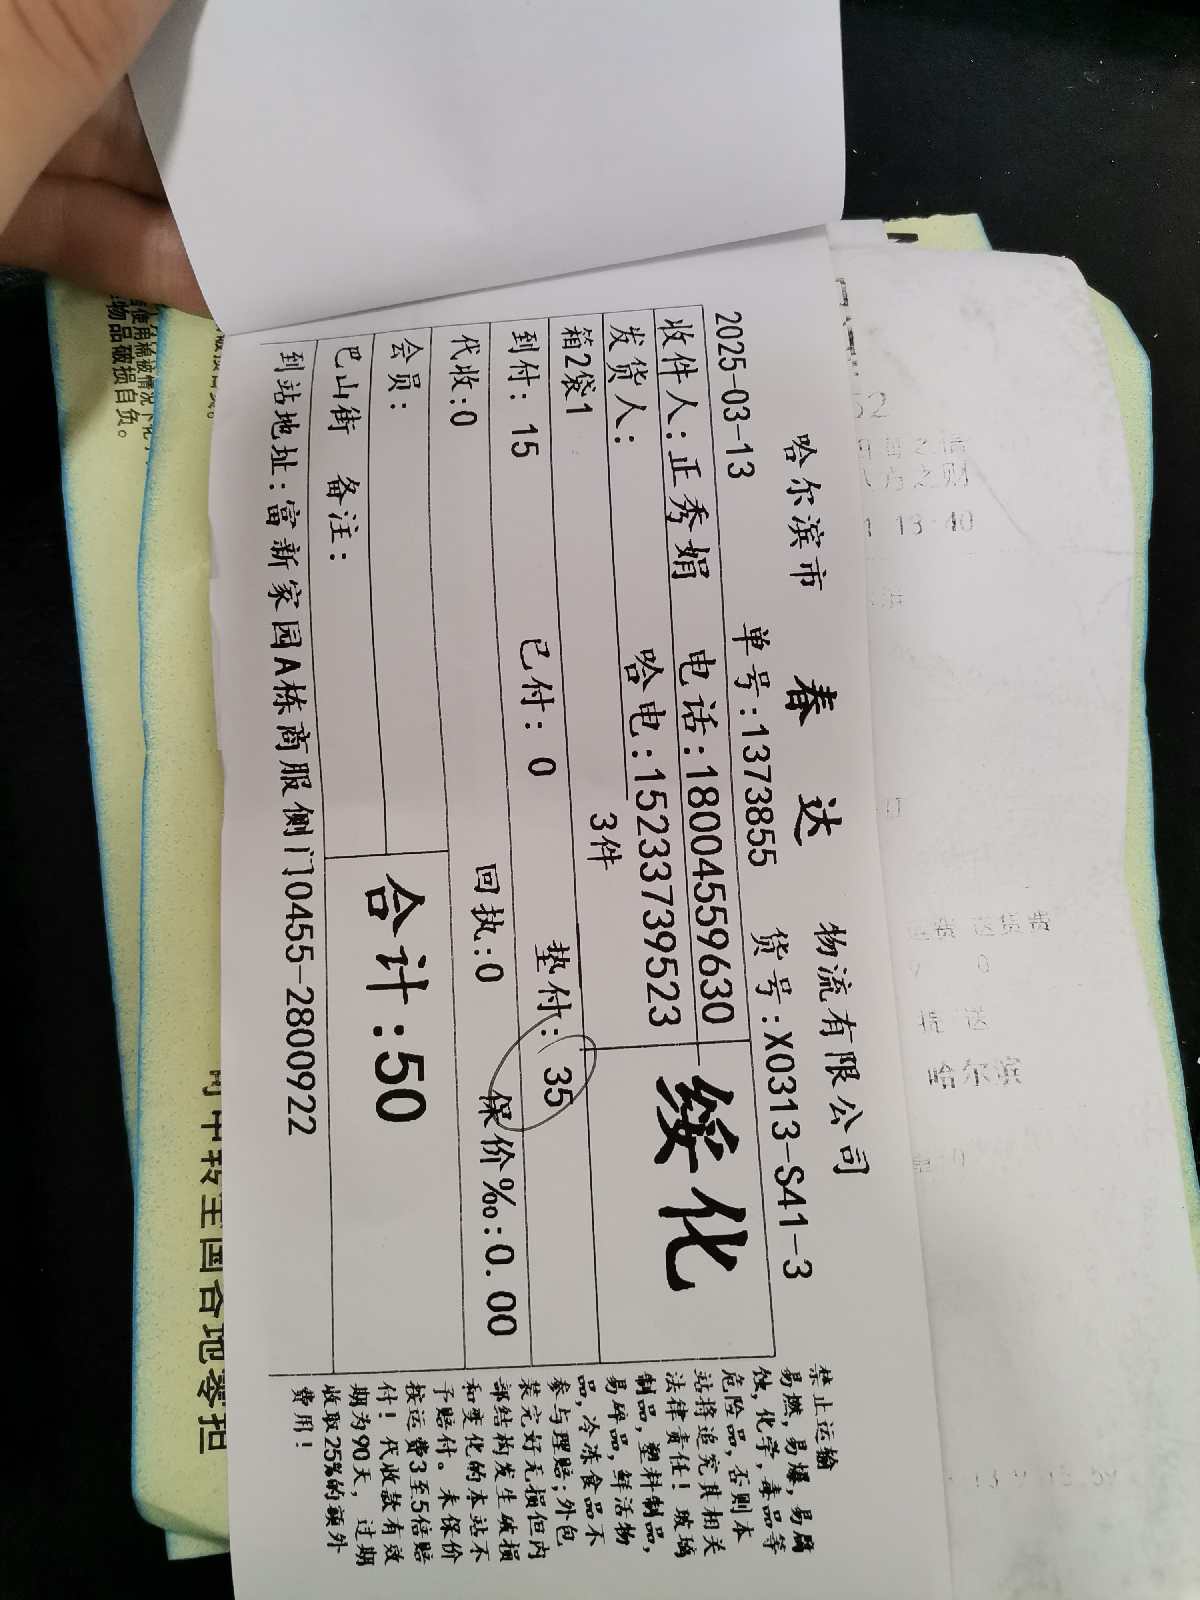 哈尔滨市 春达 物流有限公司
2025-03-13 单号:1373855 货号:X0313-S41-3
收件人:正秀娟 电话:18004559630
发货人: 哈电:15233739523
绥化
箱2袋1 3件
到付: 15 已付: 0 垫付: 35
代收:0 回执:0 保价‰:0.00
会员:
合计:50
巴山街 备注:
到站地址:富新家园A栋商服侧门0455-2800922
禁止运输
易燃,易爆,易腐
蚀,化学,毒品等
危险品,否则本
站将追究其相关
法律责任!玻璃
制品,塑料制品,
易碎品,鲜活物
品,冷冻食品不
参与理赔;外包
装完好无损但内
部结构发生破损
和变化的本站不
予赔付。未保价
按运费3至5倍赔
付!代收款有效
期为90天,过期
收取25%的额外
费用!
13:40
送货费
0
送
哈尔滨
物品破损自负。
中转全国各地零担